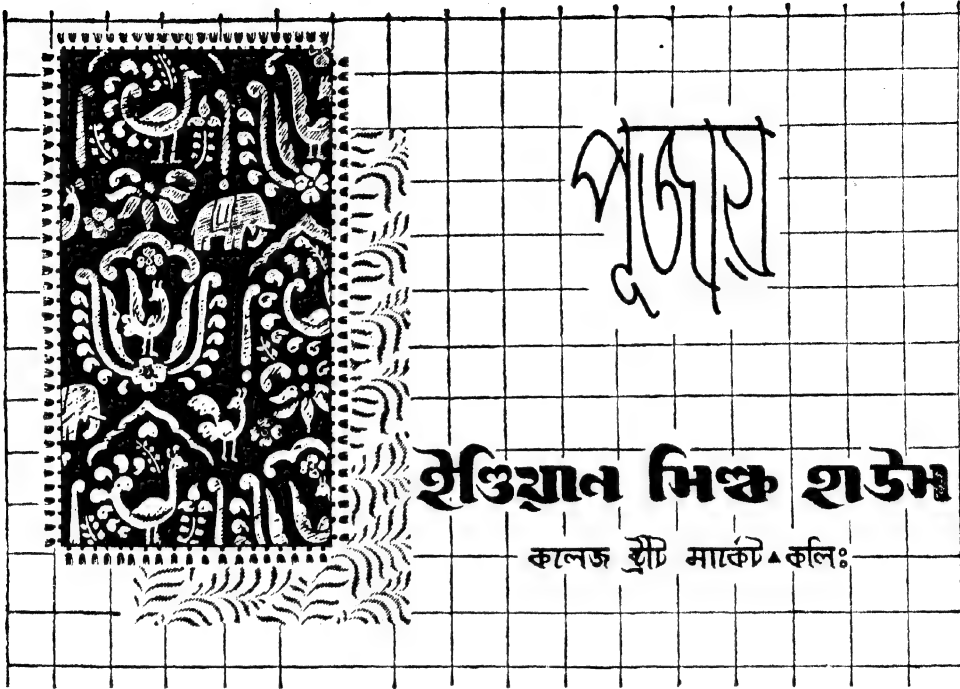 পূজায়
ইণ্ডিয়ান সিল্ক হাউস
কলেজ ষ্ট্রীট মার্কেট ▲ কলিঃ